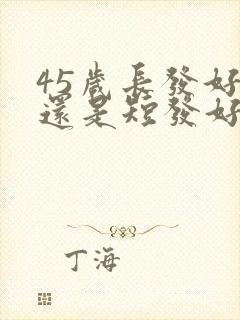 45歲長發好
還是短發好
丁海